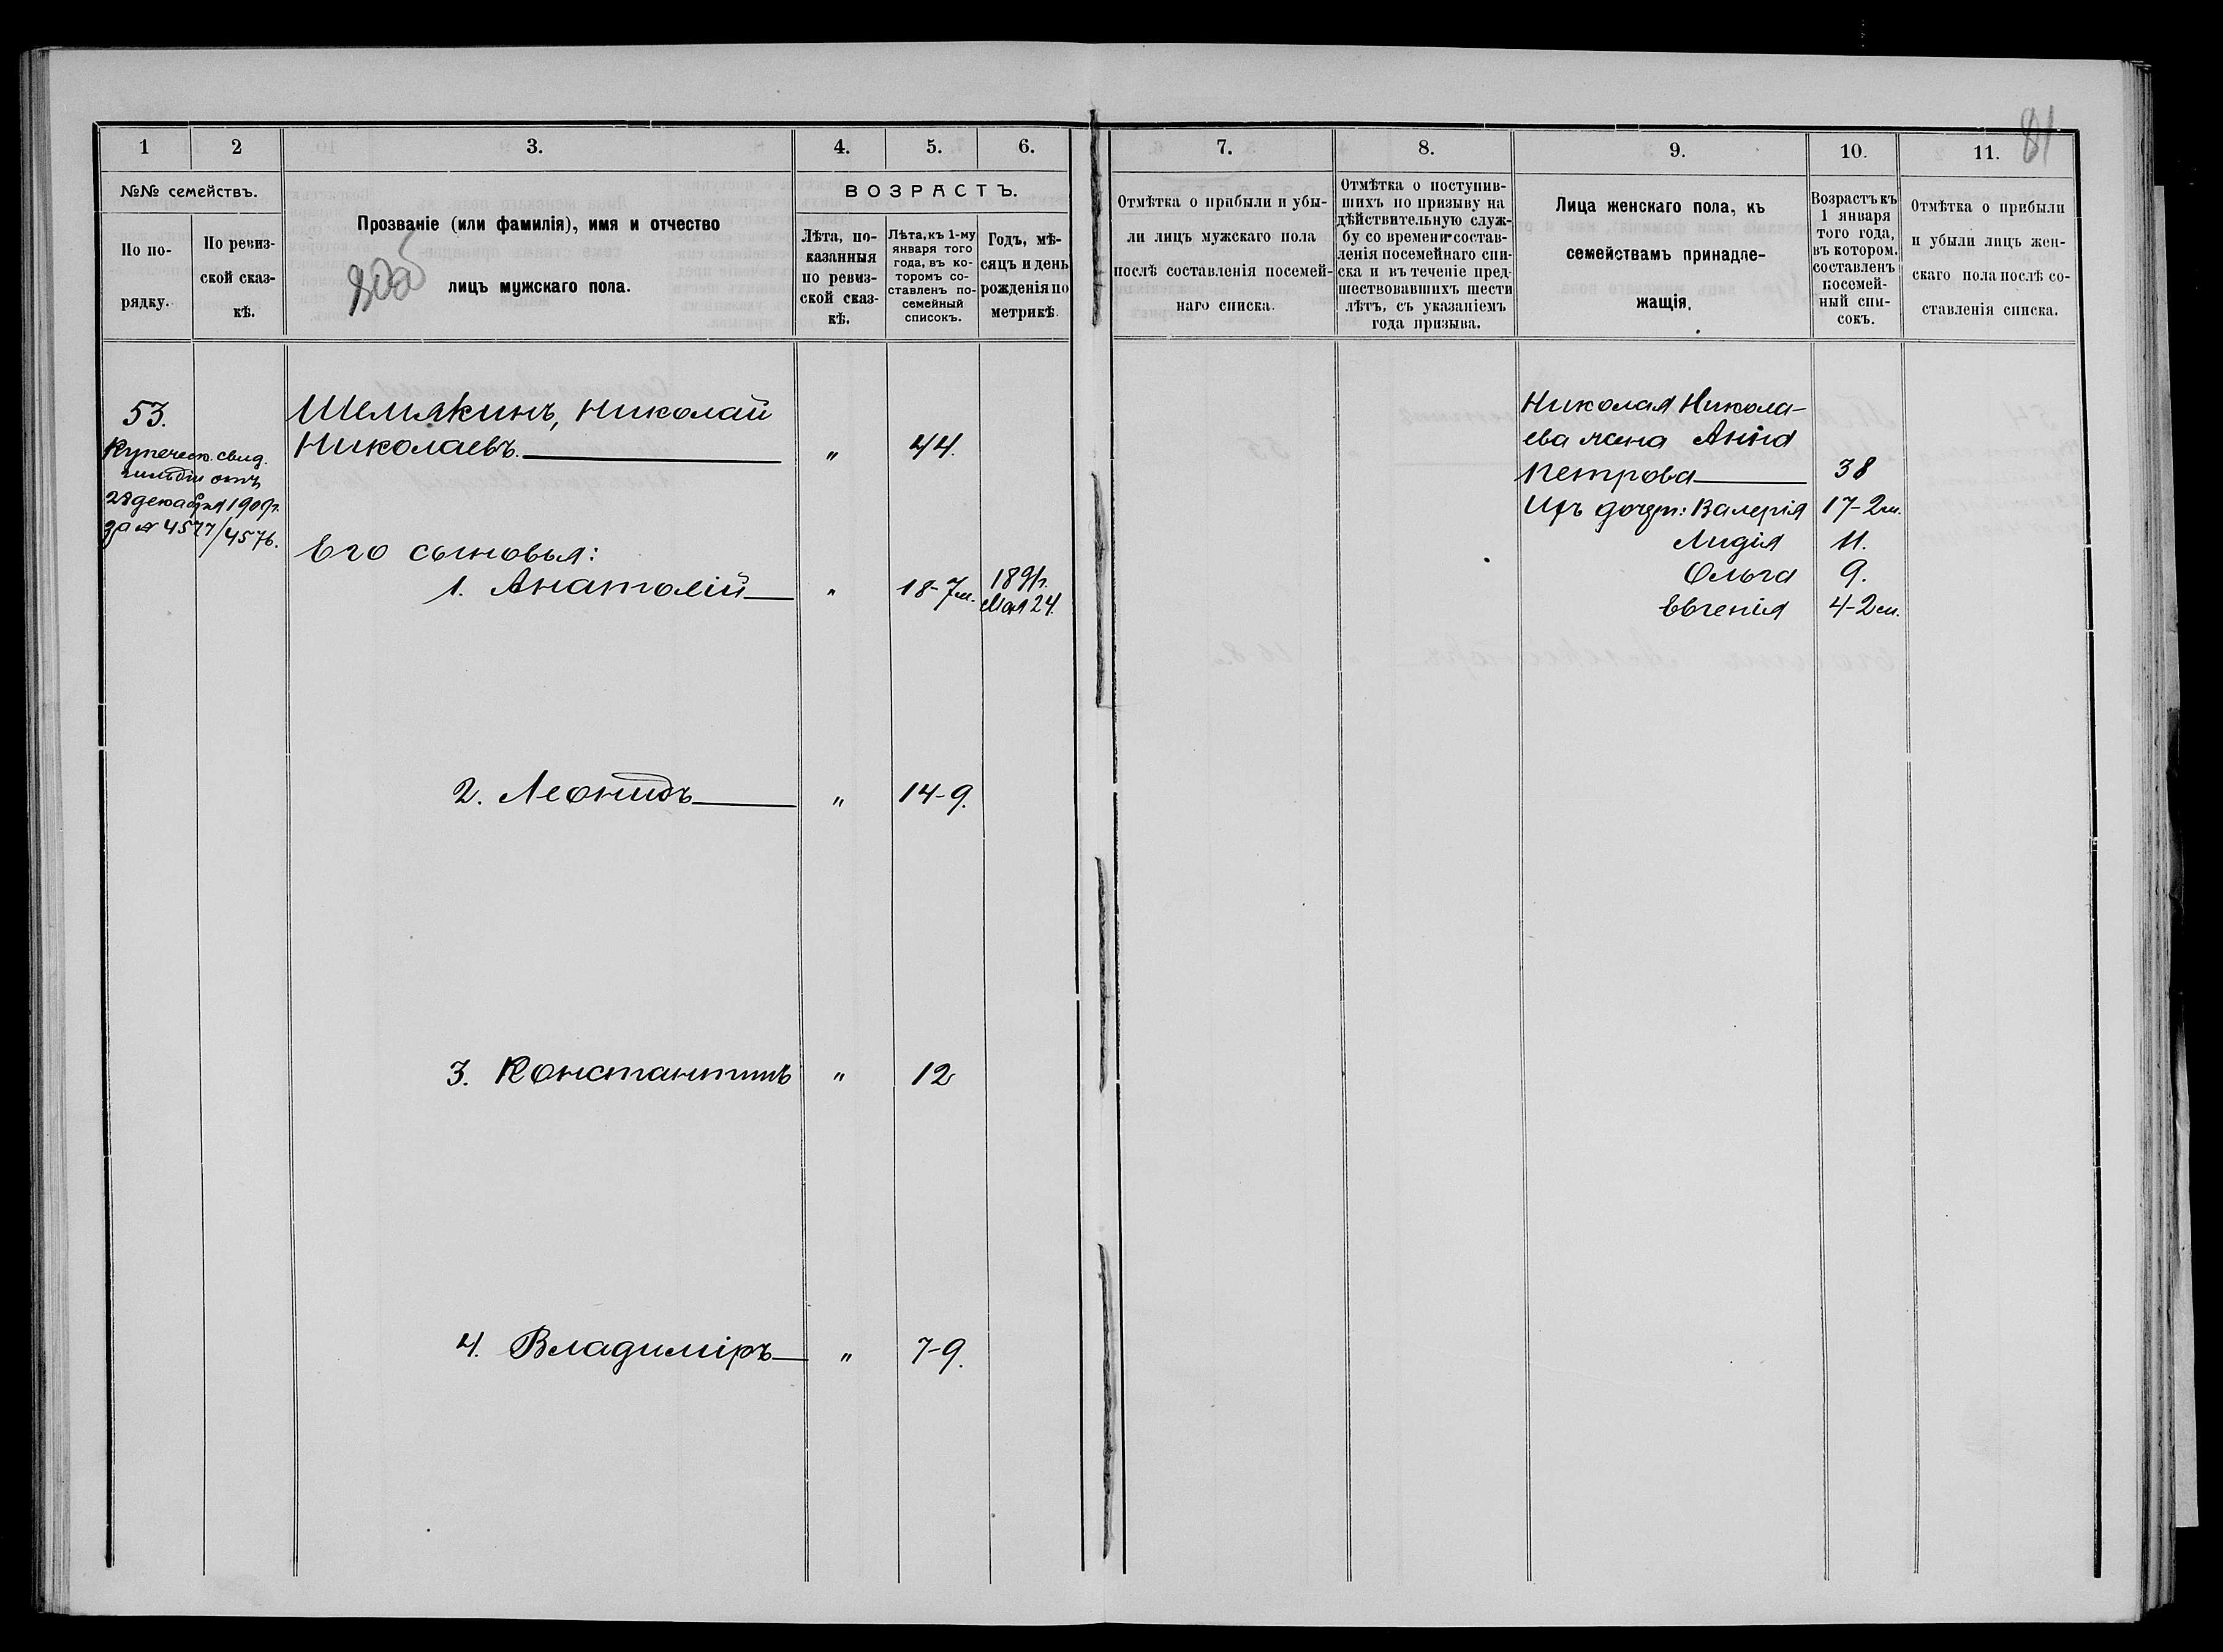 81
1
2
3.
4.
5.
6.
7.
8.
9.
10.
11.
№№ семействъ.
По по-
рядку.
По ревиз-
ской сказ-
кѣ.
Прозваніе (или фамилія), имя и отчество
лицъ мужскаго пола.
ВОЗРАСТЪ.
Лѣта, по-
казанныя
по ревиз-
ской сказ-
кѣ.
Лѣта, къ 1-му
января того
года, въ ко-
торомъ со-
ставленъ по-
семейный
списокъ.
Годъ, мѣ-
сяцъ и день
рожденія по
метрикѣ.
Отмѣтка о прибыли и убы-
ли лицъ мужскаго пола
послѣ составленія посемей-
наго списка.
Отмѣтка о поступив-
шихъ по призыву на
дѣйствительную служ-
бу со времени состав-
ленія посемейнаго спи-
ска и въ теченіе пред-
шествовавшихъ шести
лѣтъ, съ указаніемъ
года призыва.
Лица женскаго пола, къ
семействамъ принадле-
жащія.
Возрастъ къ
1 января
того года,
въ котором.
составленъ
посемей-
ный спи-
сокъ.
Отмѣтка о прибыли
и убыли лицъ жен-
скаго пола послѣ со-
ставленія списка.
53.
Купеческ. свид.
гильдіи отъ
28 декабря 1909г.
за № 4577/4576.
Шемякинъ, Николай
Николаевъ. „ 44.
Его сыновья:
1. Анатолій „ 18-7м. 1891г.
Мая 24.
2. Леонидъ „ 14-9.
3. Константинъ „ 12
4. Владиміръ „ 7-9.
Николая Никола-
ева жена Анна
Петрова 38
Ихъ дочери: Валерія 17-2м.
Лидія 11.
Ольга 9.
Евгенія 4-2м.